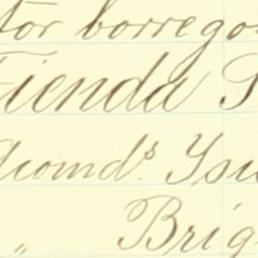 tor borrego
Tienda
Diomd.s Ysi
„ Brig